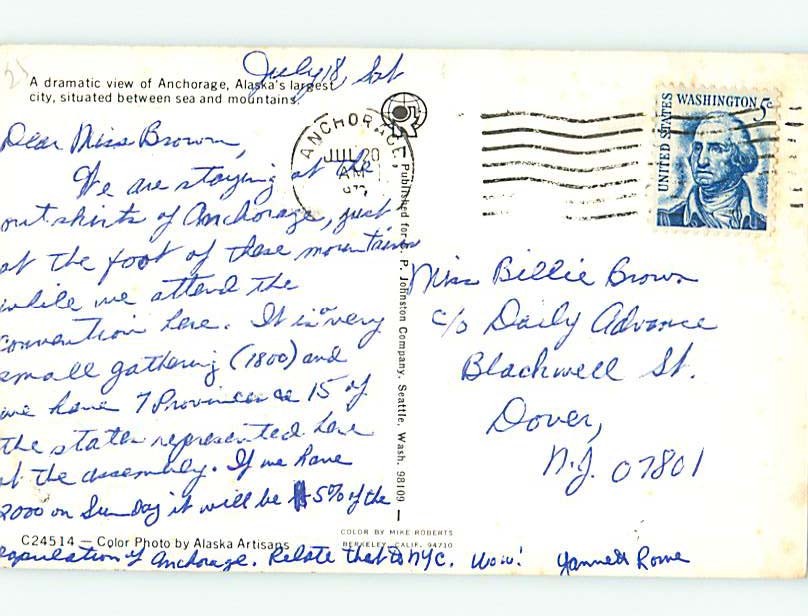 July 18, Sat
A dramatic view of Anchorage, Alaska's largest
city, situated between sea and mountains.
Dear Miss Brown,
We are staying at the
outskirts of Anchorage, just
at the foot of these mountains
while we attend the
convention here. It is a very
small gathering (1800) and
we have 7 Provinces &amp; 15 of
the states represented here
at the assembly. If we have
2000 on Sunday it will be 5% of the
population of Anchorage. Relate that to NYC. Wow!
C24514 — Color Photo by Alaska Artisans
Published for P. Johnston Company, Seattle, Wash. 98109
COLOR BY MIKE ROBERTS
BERKELEY, CALIF. 94710
ANCHORAGE,
JUL 20
AM
UNITED STATES
WASHINGTON 5c
Miss Billie Brown
c/o Daily Advance
Blackwell St.
Dover,
N.J. 07801
Rowe